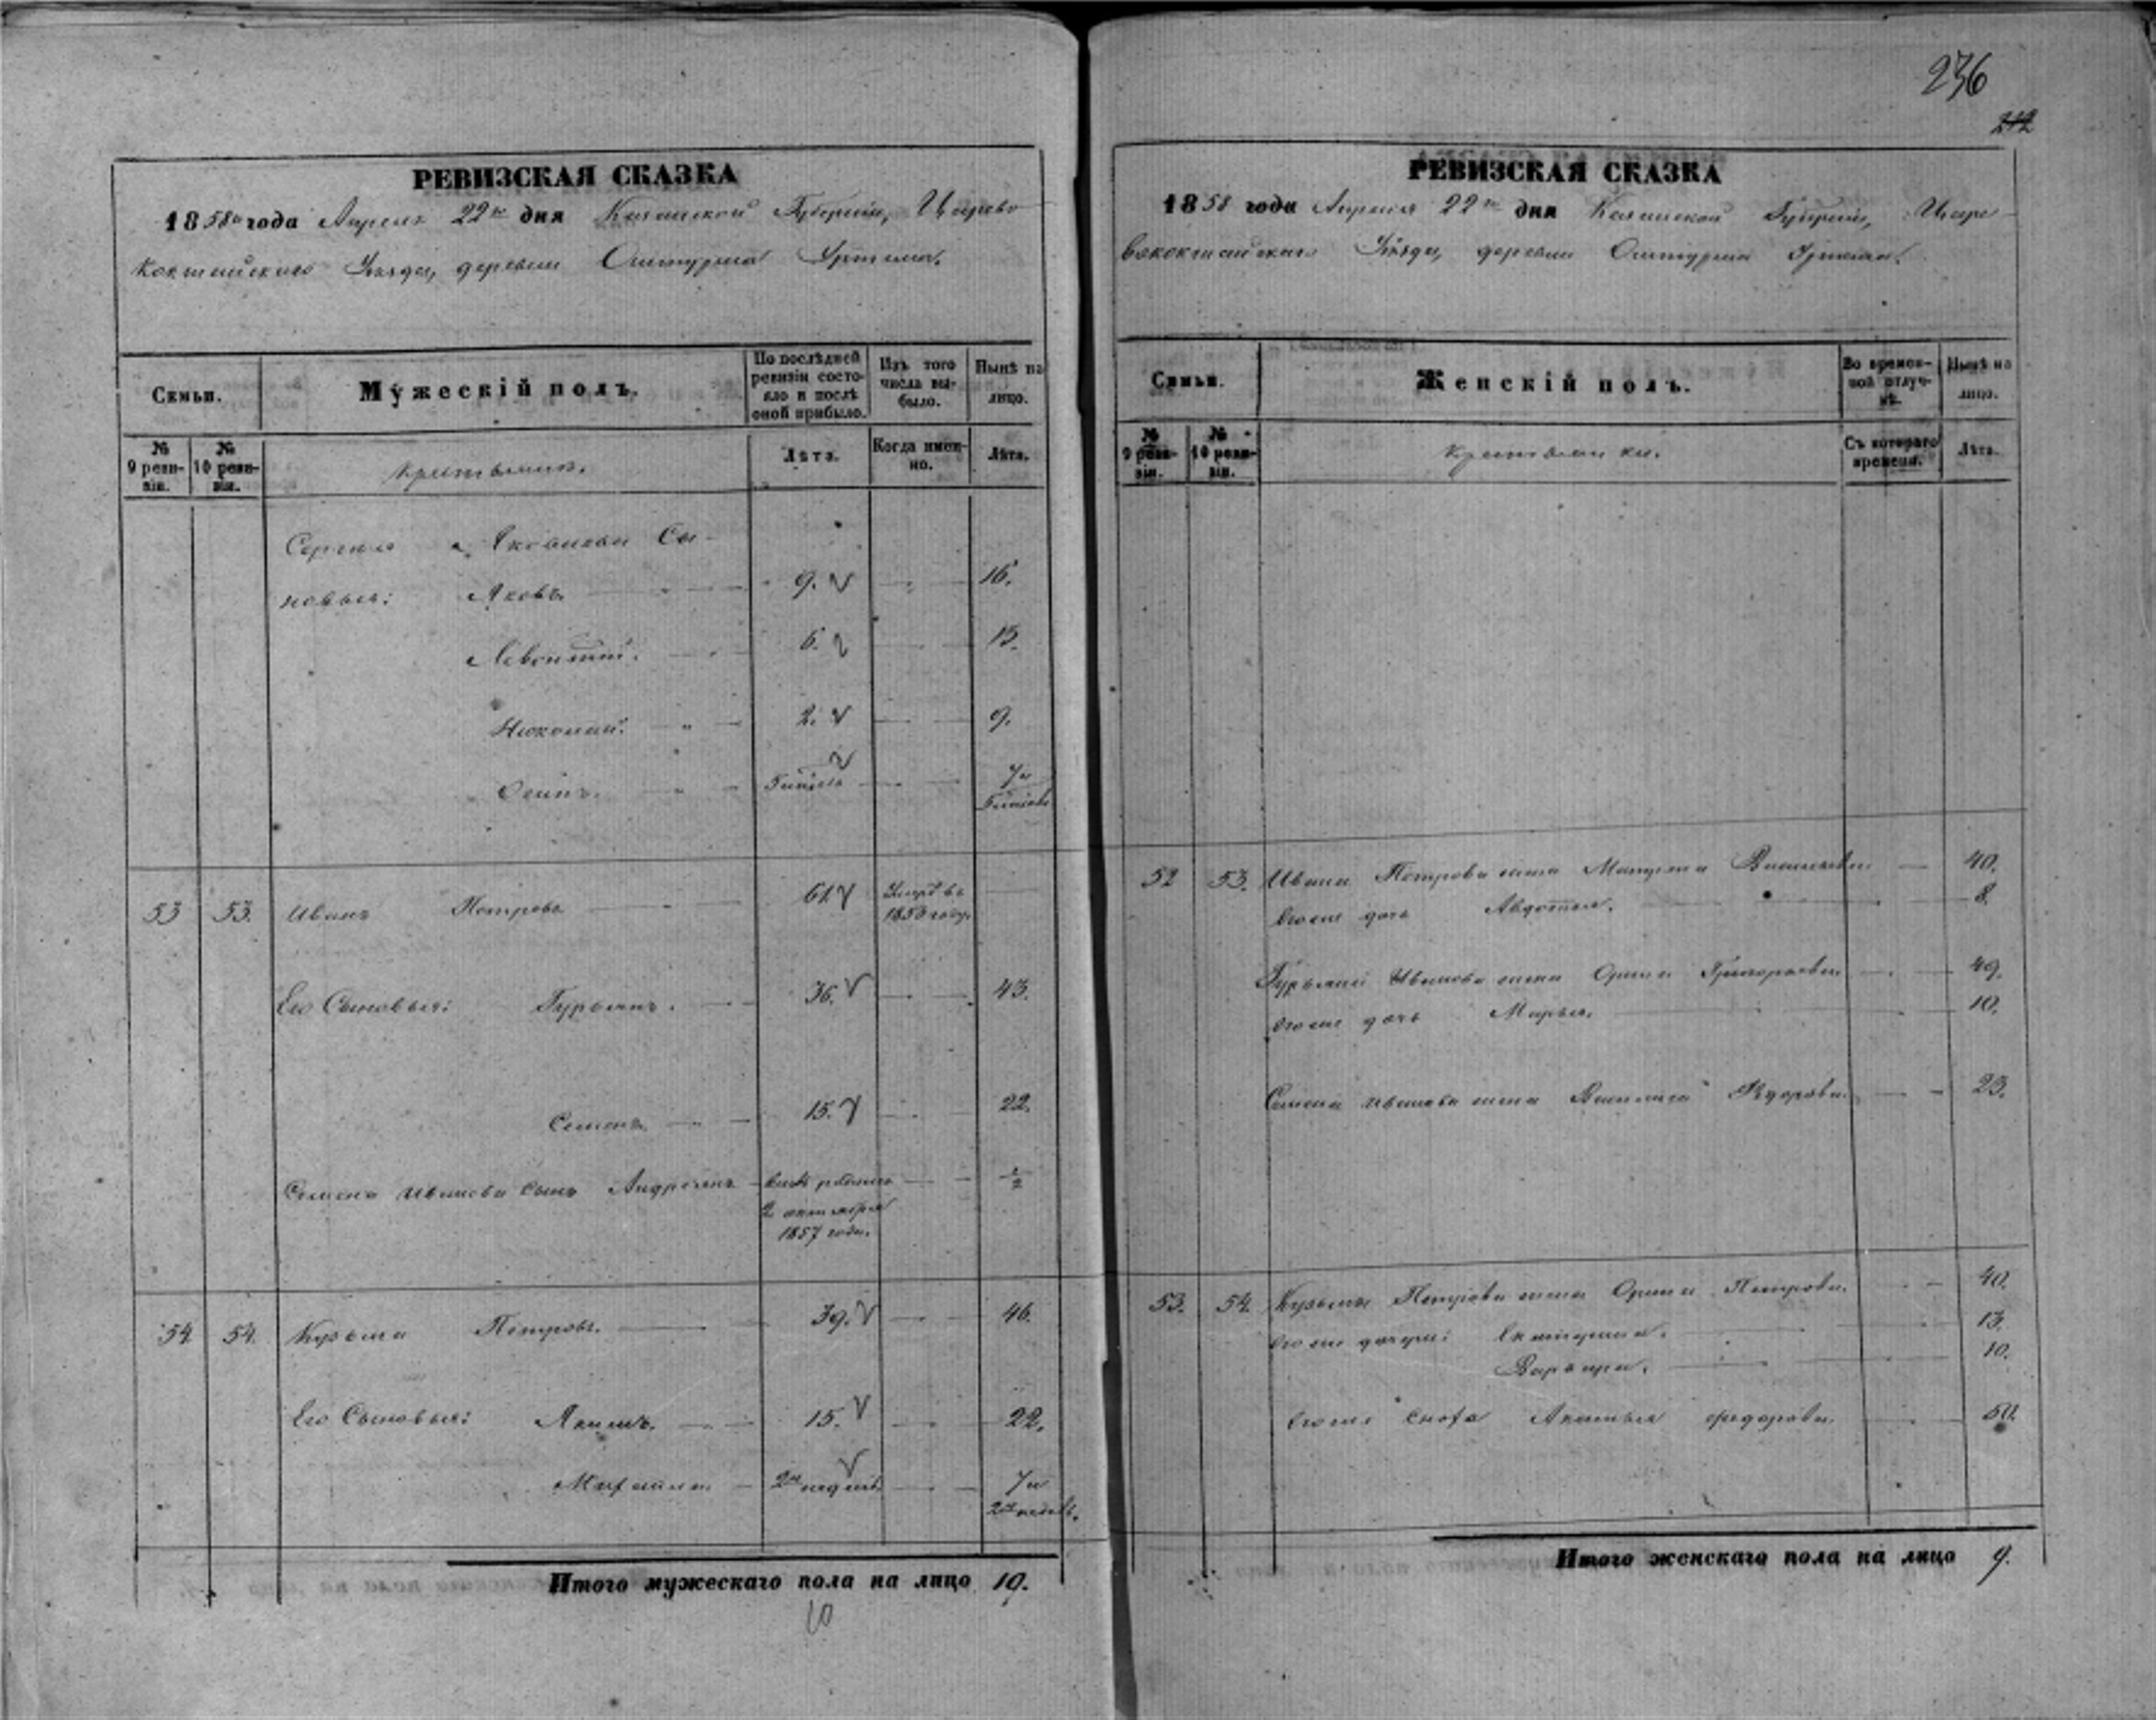 236
212
РЕВИЗСКАЯ СКАЗКА
1858го года Апреля 22го дня Казанской Губернiи, Царево
кокшайскаго Уѣзда, деревни Ошturма
Семьи.
Мужескiй полъ.
По послѣдней ревизiи состояло и послѣ оной прибыло.
Изъ того числа выбыло.
Нынѣ на лицо.
№ 9 ревизiи.
№ 10 ревизiи.
крестьянъ.
Лѣта.
Когда именно.
Лѣта.
Сергѣя Яковлева Сы-
новья: Яковъ 9. 16.
Левонтiй. 6. 13.
Николай. 2. 9.
Осипъ. 7 и
53 53. Иванъ Петровъ 61. Умеръ въ
Его Сыновья: Гурьянъ. 36. 43.
Семенъ 15. 22.
Семена Иванова сынъ Андреянъ
2 октября 1/2
1857 года.
54 54. Кузьма Петровъ. 39. 46.
Его Сыновья: Акимъ. 15. 22.
Михайла 2 недѣль 7 и
2 недѣль.
Итого мужескаго пола на лицо 10.
10
РЕВИЗСКАЯ СКАЗКА
1858 года Апреля 22го дня Казанской Губернiи, Царе-
вококшайскаго Уѣзда, деревни
Семьи.
Женскiй полъ.
Во временной отлучкѣ.
Нынѣ на лицо.
№ 9 ревизiи.
№ 10 ревизiи.
крестьянки.
Съ котораго времени.
Лѣта.
52 53. Ивана Петрова жена Васильева 40.
Его же дочь Авдотья. 8.
Гурьяна Иванова жена Орина Григорьева 49.
Его же дочь Марья. 10.
Семена Иванова жена Василиса Федорова 23.
53. 54. Кузьмы Петрова жена Орина Петрова. 40.
Его же дочери: Екатерина. 13.
Варвара. 10.
Его же сноха Федорова. 50.
Итого женскаго пола на лицо 9.